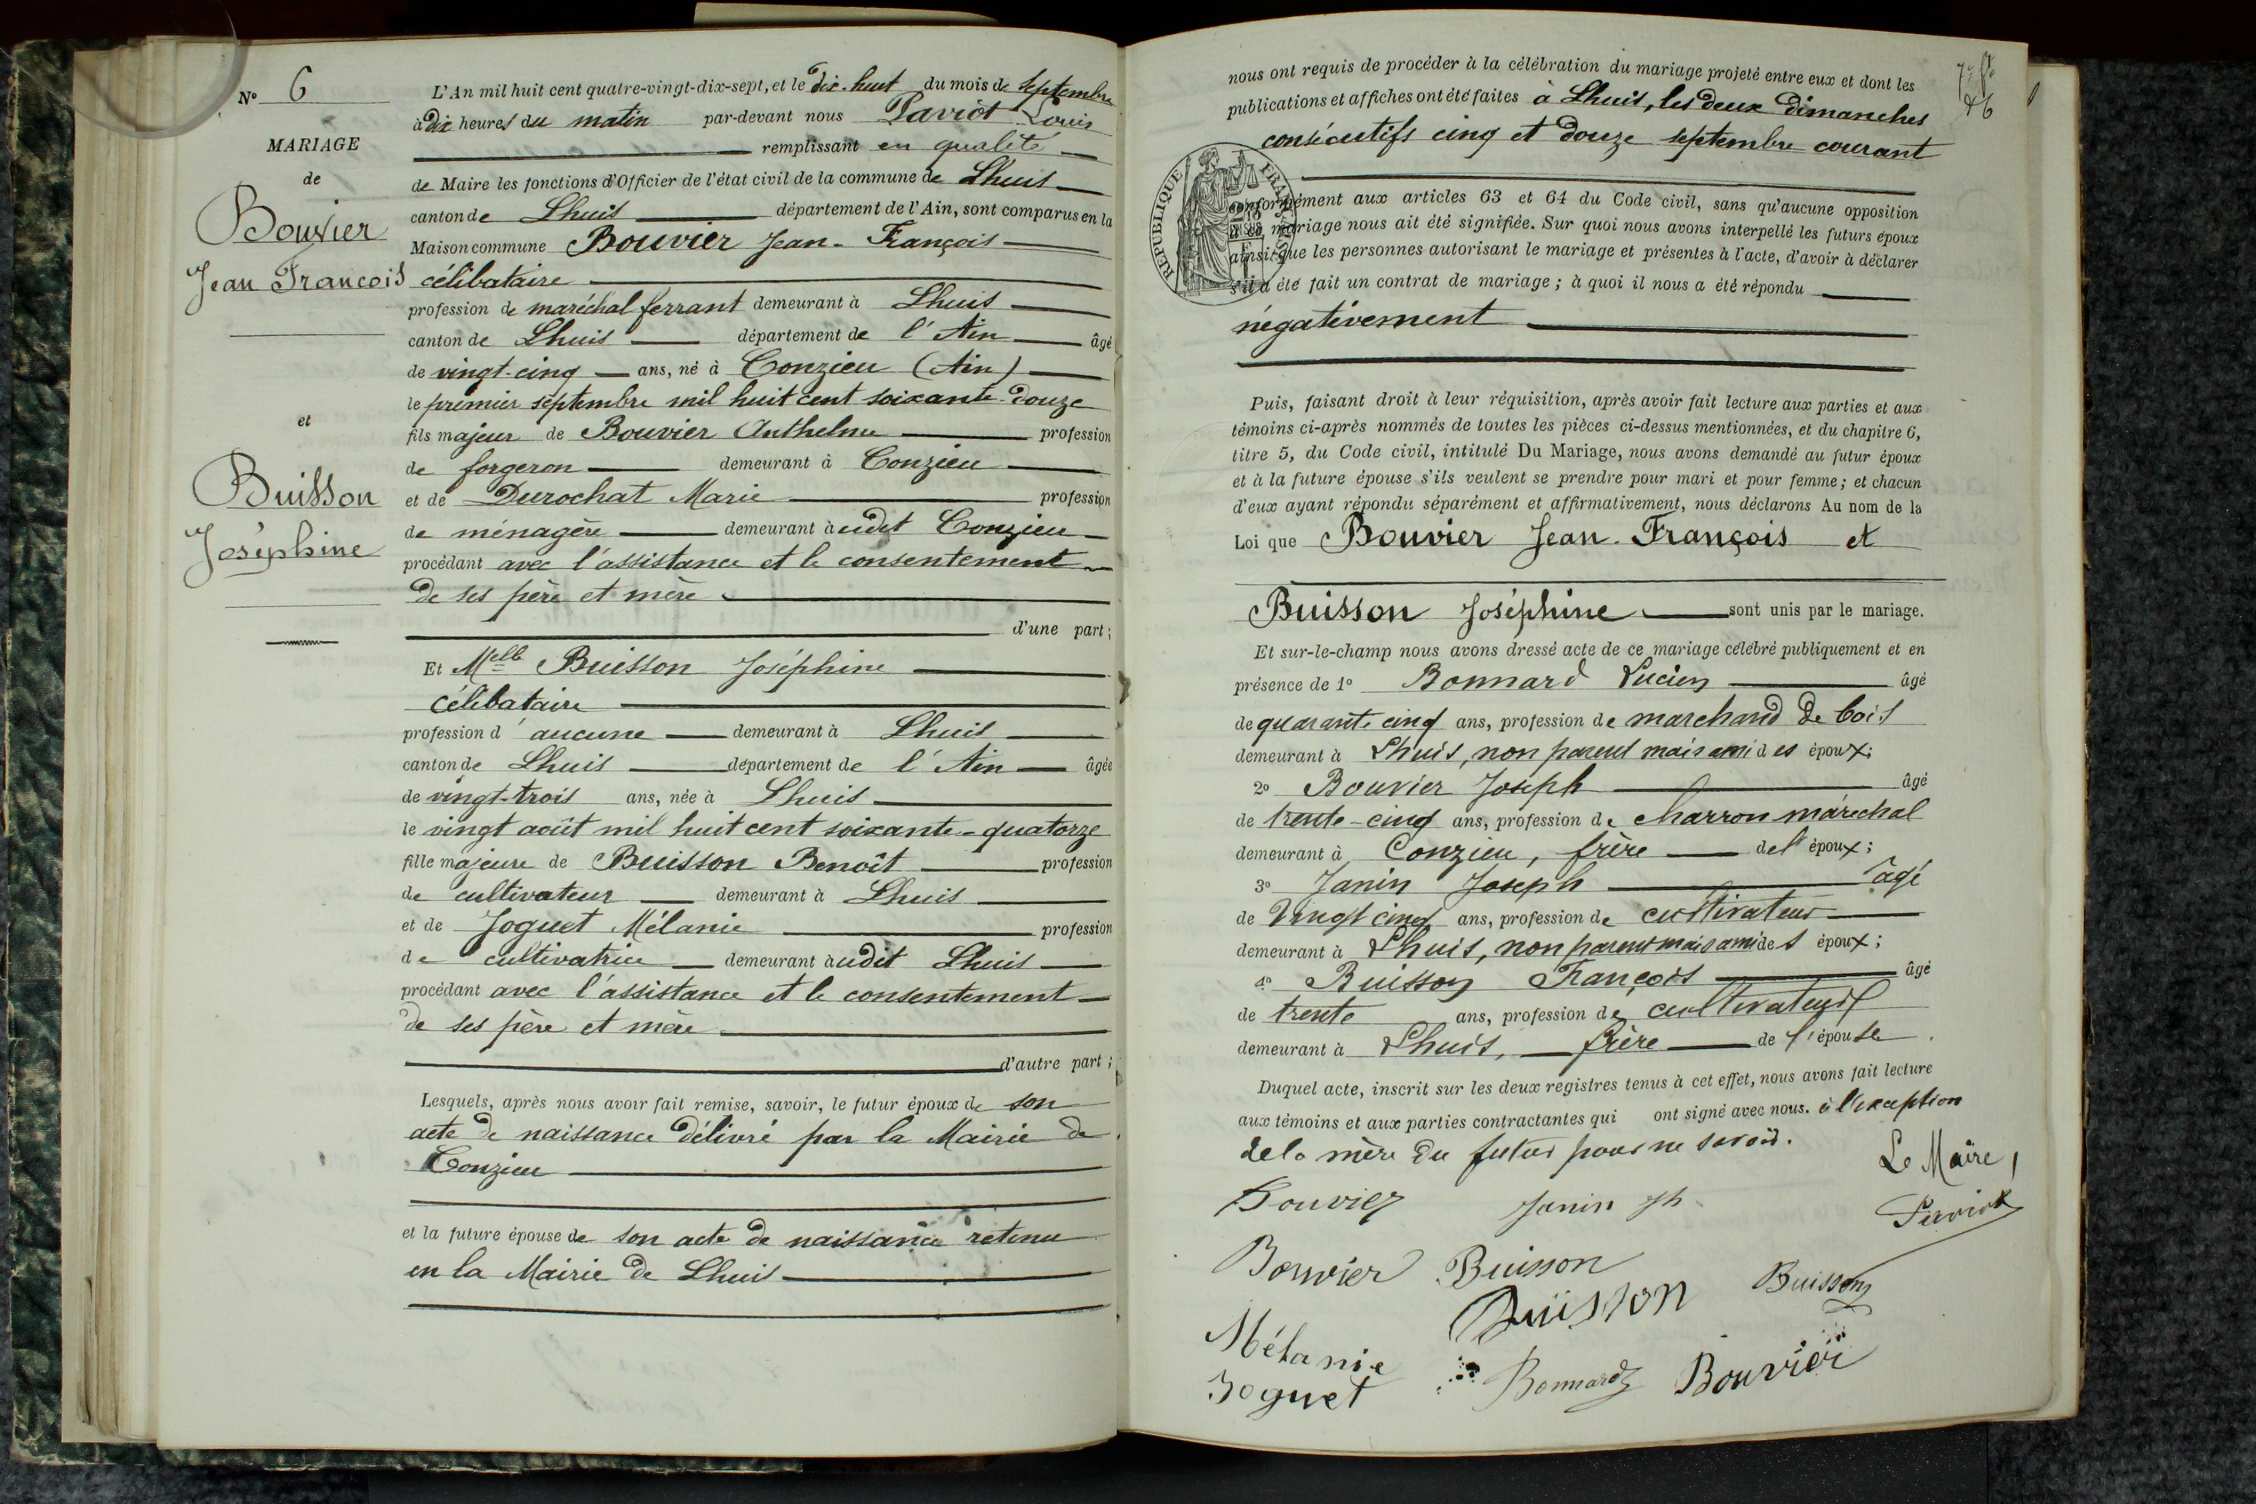 N° 6
MARIAGE
de
Bouvier
Jean François
et
Buisson
Joséphine
L'An mil huit cent quatre-vingt-dix-sept, et le dix-huit du mois de septembre
à dix heures du matin par-devant nous Paviot Louis
remplissant en qualité
de Maire les fonctions d'Officier de l'état civil de la commune de Lhuis
canton de Lhuis département de l'Ain, sont comparus en la
Maison commune Bouvier Jean-François
célibataire
profession de maréchal ferrant demeurant à Lhuis
canton de Lhuis département de l'Ain âgé
de vingt-cinq ans, né à Conzieu (Ain)
le premier septembre mil huit cent soixante-douze
fils majeur de Bouvier Anthelme profession
de forgeron demeurant à Conzieu
et de Durochat Marie profession
de ménagère demeurant audit Conzieu
procédant avec l'assistance et le consentement
de ses père et mère
d'une part;
Et Melle Buisson Joséphine
célibataire
profession d'aucune demeurant à Lhuis
canton de Lhuis département de l'Ain âgée
de vingt-trois ans, née à Lhuis
le vingt août mil huit cent soixante-quatorze
fille majeure de Buisson Benoît profession
de cultivateur demeurant à Lhuis
et de Joguet Mélanie profession
de cultivatrice demeurant audit Lhuis
procédant avec l'assistance et le consentement
de ses père et mère
d'autre part;
Lesquels, après nous avoir fait remise, savoir, le futur époux de son
acte de naissance délivré par la Mairie de
Conzieu
et la future épouse de son acte de naissance retenu
en la Mairie de Lhuis
nous ont requis de procéder à la célébration du mariage projeté entre eux et dont les
publications et affiches ont été faites à Lhuis, les deux dimanches
consécutifs cinq et douze septembre courant
RÉPUBLIQUE FRANÇAISE
conformément aux articles 63 et 64 du Code civil, sans qu'aucune opposition
à ce mariage nous ait été signifiée. Sur quoi nous avons interpellé les futurs époux
ainsi que les personnes autorisant le mariage et présentes à l'acte, d'avoir à déclarer
s'il a été fait un contrat de mariage; à quoi il nous a été répondu
négativement
Puis, faisant droit à leur réquisition, après avoir fait lecture aux parties et aux
témoins ci-après nommés de toutes les pièces ci-dessus mentionnées, et du chapitre 6,
titre 5, du Code civil, intitulé Du Mariage, nous avons demandé au futur époux
et à la future épouse s'ils veulent se prendre pour mari et pour femme; et chacun
d'eux ayant répondu séparément et affirmativement, nous déclarons Au nom de la
Loi que Bouvier Jean-François et
Buisson Joséphine sont unis par le mariage.
Et sur-le-champ nous avons dressé acte de ce mariage célébré publiquement et en
présence de 1° Bonnard Lucien âgé
de quarante cinq ans, profession de marchand de bois
demeurant à Lhuis, non parent mais ami des époux;
2° Bouvier Joseph âgé
de trente-cinq ans, profession de charron maréchal
demeurant à Conzieu, frère de l'époux;
3° Janin Joseph âgé
de vingt cinq ans, profession de cultivateur
demeurant à Lhuis, non parent mais ami des époux;
4° Buisson François âgé
de trente ans, profession de cultivateur
demeurant à Lhuis, frère de l'épouse
Duquel acte, inscrit sur les deux registres tenus à cet effet, nous avons fait lecture
aux témoins et aux parties contractantes qui ont signé avec nous. à l'exception
de la mère du futur pour ne savoir.
Le Maire,
Bouvier Janin Jh Paviot
Bouvier Buisson
Buisson Buisson
Mélanie
Joguet Bonnard Bouvier